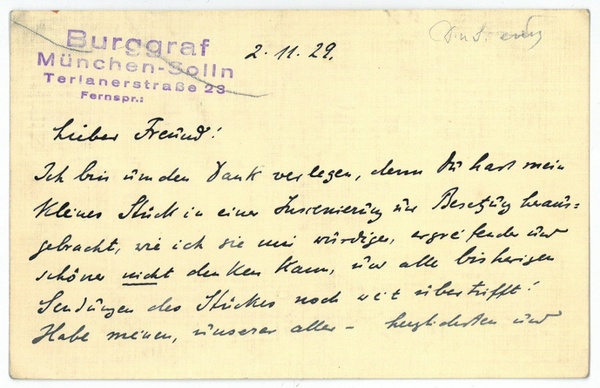 Burggraf
München-Solln
Terlanerstraße 23
Fernspr.:
2.11.29.
Lieber Freund!
Ich bin um den Dank verlegen, denn Du hast mein
kleines Stück in einer Inscenierung und Besetzung heraus-
gebracht, wie ich sie mir würdiger, ergreifender und
schöner nicht denken kann, und alle bisherigen
Sendungen des Stückes noch weit übertrifft!
Habe meinen, unserer aller – herzlichsten und